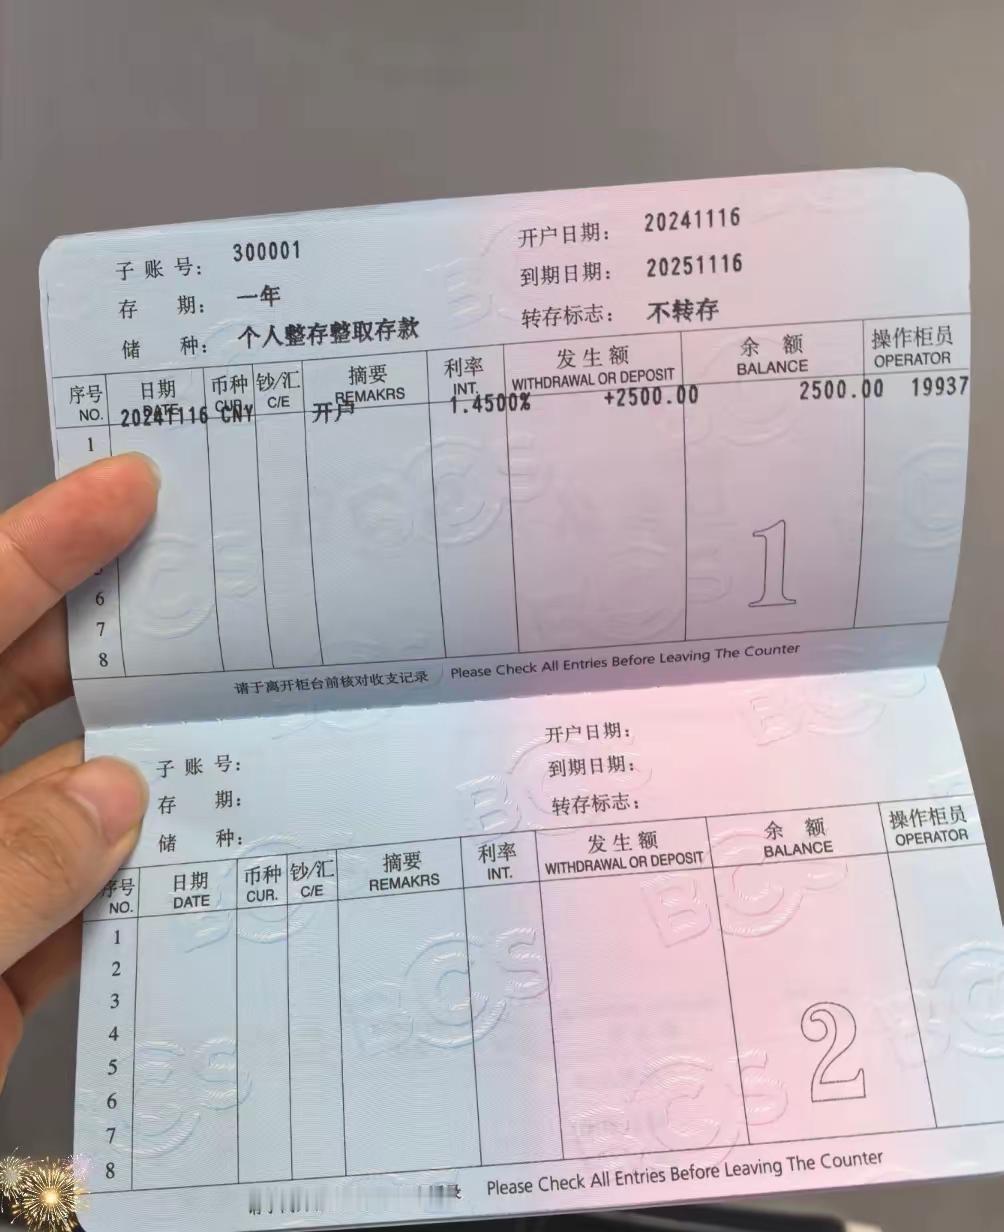 子账号： 300001 开户日期： 20241116
存 期： 一年 到期日期： 20251116
储 种： 个人整存整取存款 转存标志： 不转存
序号 日期 币种 钞/汇 摘要 利率 发生额 余额 操作柜员
NO. DATE CUR. C/E REMAKRS INT. WITHDRAWAL OR DEPOSIT BALANCE OPERATOR
20241116 CNY 开户 1.4500% +2500.00 2500.00 19937
1
6
7
8
1
请于离开柜台前核对收支记录 Please Check All Entries Before Leaving The Counter
子账号： 开户日期：
存 期： 到期日期：
储 种： 转存标志：
序号 日期 币种 钞/汇 摘要 利率 发生额 余额 操作柜员
NO. DATE CUR. C/E REMAKRS INT. WITHDRAWAL OR DEPOSIT BALANCE OPERATOR
1
2
3
4
5
6
7
8
2
Please Check All Entries Before Leaving The Counter
BCS